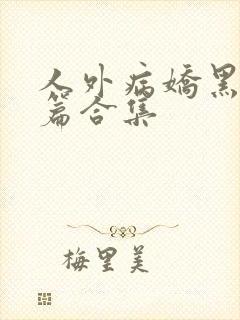 人外病嬌黑
篇合集
梅里美